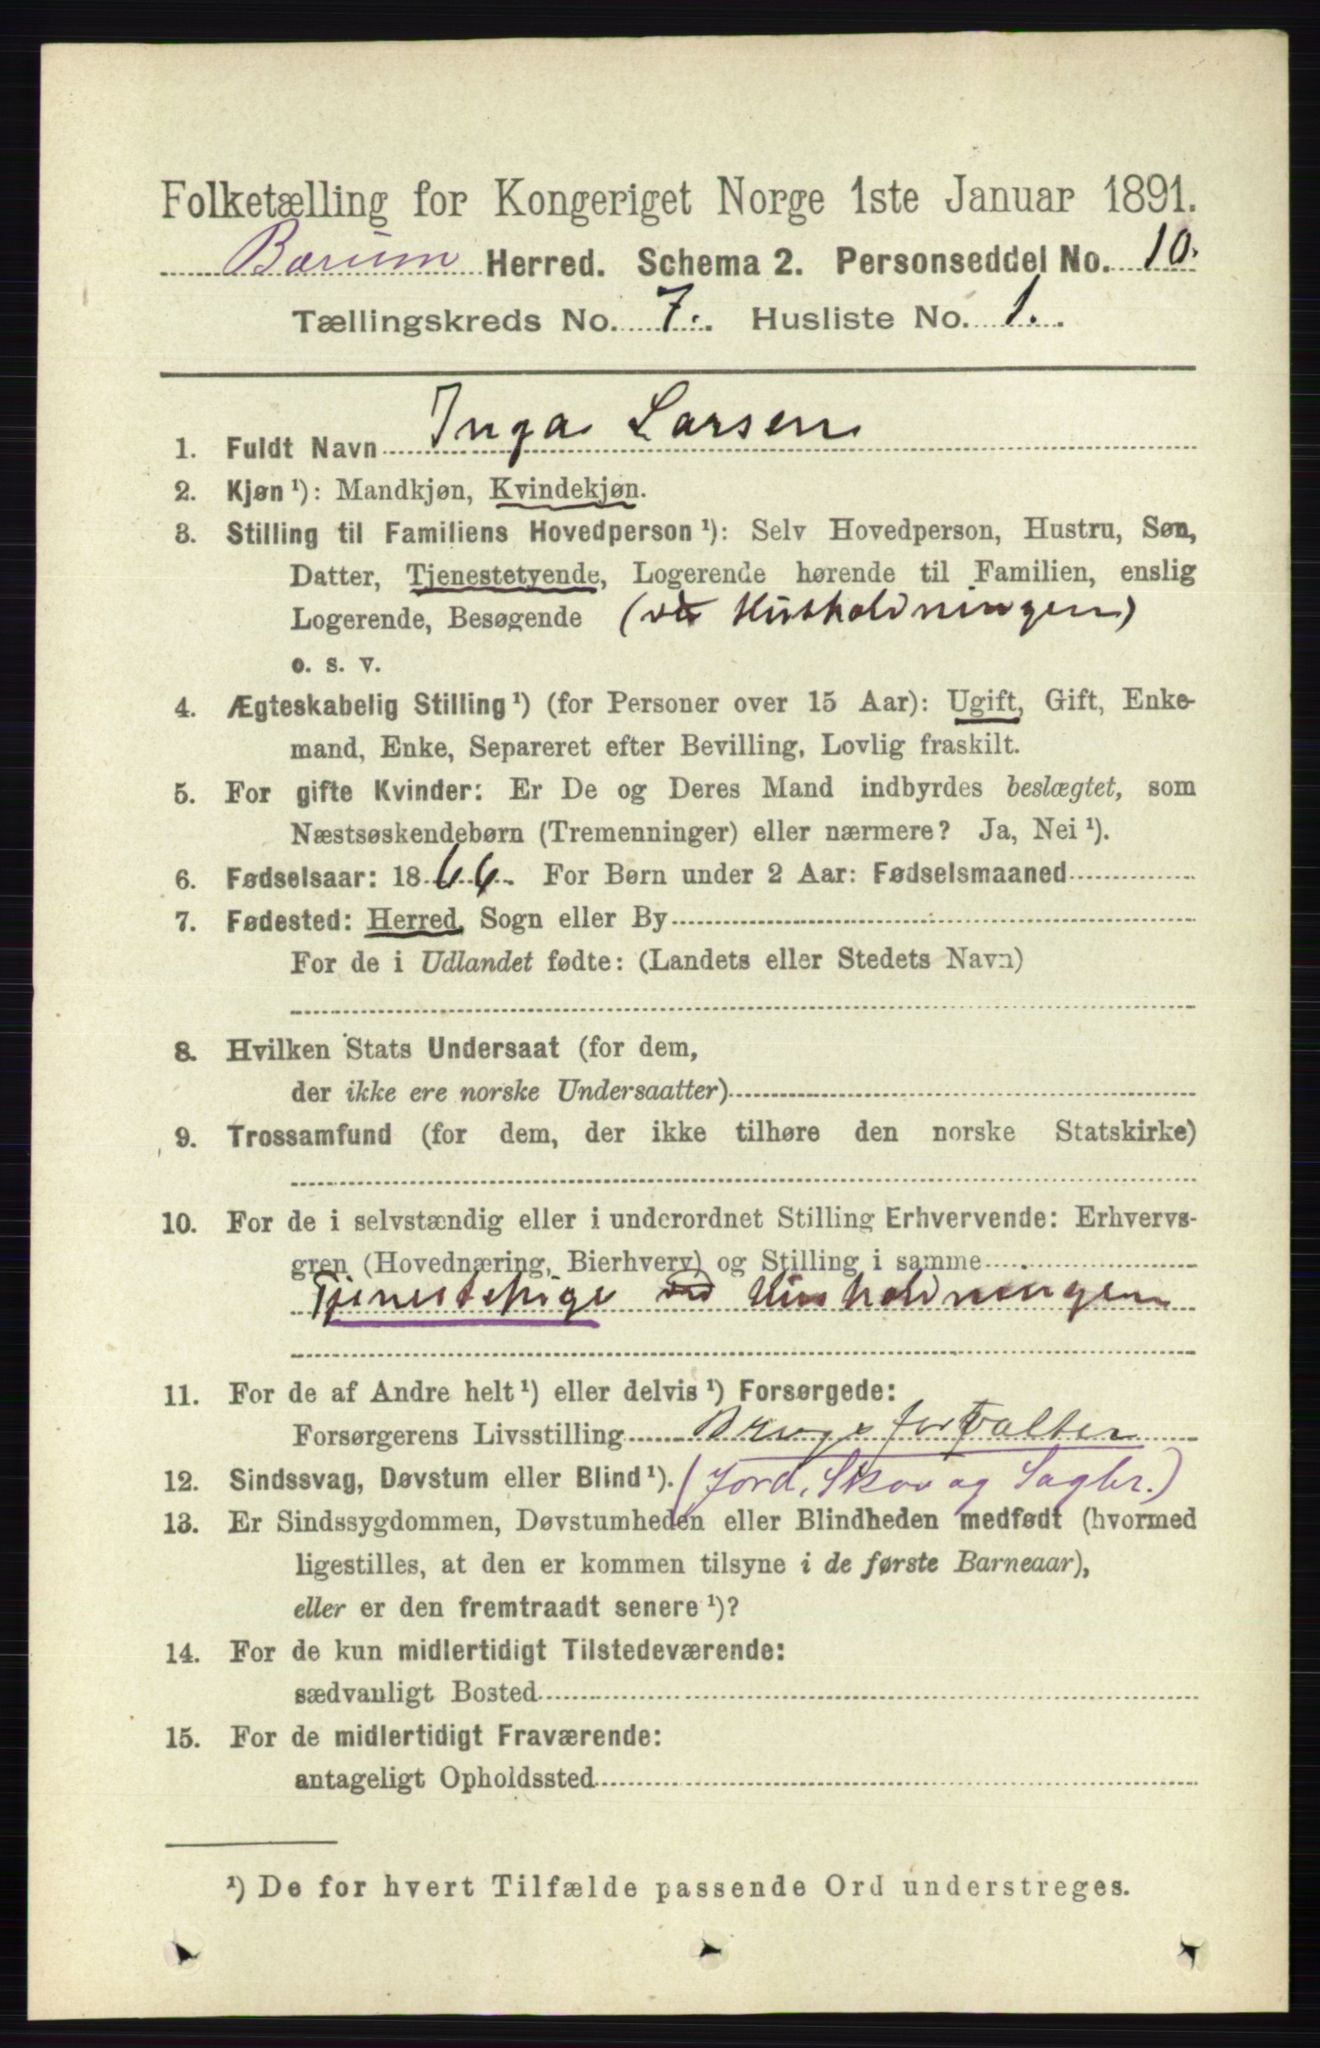 Folketælling for Kongeriget Norge 1ste Januar 1891.
Bærum Herred. Schema 2. Personseddel No. 10.
Tællingskreds No. 7. Husliste No. 1.
1. Fuldt Navn Inga Larsen
2. Kjøn ¹): Mandkjøn, Kvindekjøn.
3. Stilling til Familiens Hovedperson ¹): Selv Hovedperson, Hustru, Søn,
Datter, Tjenestetyende, Logerende hørende til Familien, enslig
Logerende, Besøgende (ved Husholdningen)
o. s. v.
4. Ægteskabelig Stilling ¹) (for Personer over 15 Aar): Ugift, Gift, Enke-
mand, Enke, Separeret efter Bevilling, Lovlig fraskilt.
5. For gifte Kvinder: Er De og Deres Mand indbyrdes beslægtet, som
Næstsøskendebørn (Tremenninger) eller nærmere? Ja, Nei ¹).
6. Fødselsaar: 1866. For Børn under 2 Aar: Fødselsmaaned
7. Fødested: Herred, Sogn eller By
For de i Udlandet fødte: (Landets eller Stedets Navn)
8. Hvilken Stats Undersaat (for dem,
der ikke ere norske Undersaatter)
9. Trossamfund (for dem, der ikke tilhøre den norske Statskirke)
10. For de i selvstændig eller i underordnet Stilling Erhvervende: Erhvervs-
gren (Hovednæring, Bierhverv) og Stilling i samme
Tjenestepige ved Husholdningen
11. For de af Andre helt ¹) eller delvis ¹) Forsørgede:
Forsørgerens Livsstilling Brugsforvalter
12. Sindssvag, Døvstum eller Blind ¹). (Jord, Skov og Sagbr.)
13. Er Sindssygdommen, Døvstumheden eller Blindheden medfødt (hvormed
ligestilles, at den er kommen tilsyne i de første Barneaar),
eller er den fremtraadt senere ¹)?
14. For de kun midlertidigt Tilstedeværende:
sædvanligt Bosted
15. For de midlertidigt Fraværende:
antageligt Opholdssted
¹) De for hvert Tilfælde passende Ord understreges.